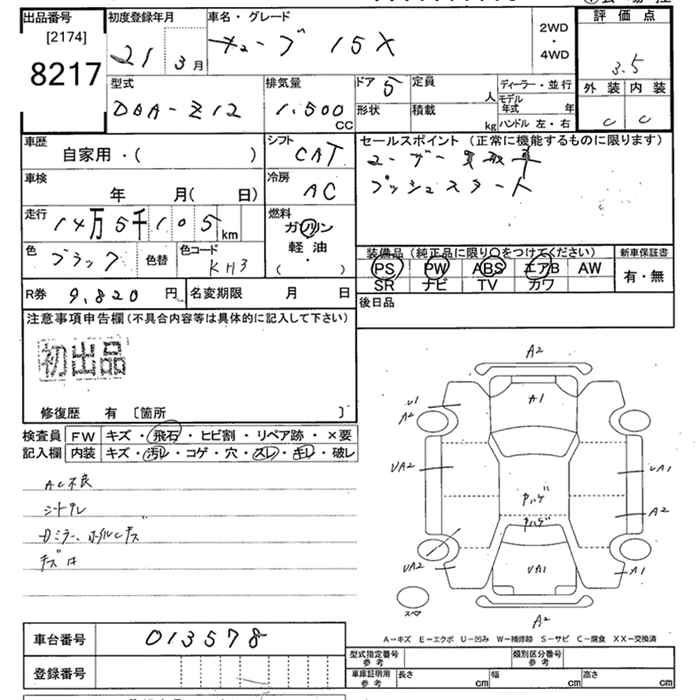 出品番号
[2174]
8217
初度登録年月
21 3月
車名・グレード
キューブ 15X
2WD
・
4WD
評価点
3.5
外装 内装
C C
型式
DBA-Z12
排気量
1.500
CC
ドア 5
定員
人
形状
積載
kg
ディーラー・並行
モデル
年式
年
ハンドル 左・右
車歴
自家用・( )
シフト
CAT
セールスポイント (正常に機能するものに限ります)
ユーザー買取車
プッシュスタート
車検
年 月( 日)
冷房
AC
走行
14万5千105
km
燃料
ガソリン
軽油
( ・ )
色
ブラック
色替
色コード
KH3
装備品 (純正品に限り○をつけてください)
PS PW ABS エアB AW
SR ナビ TV カワ
新車保証書
有・無
R券 9,820 円
名変期限 月 日
後日品
注意事項申告欄 (不具合内容等は具体的に記入して下さい)
初出品
修復歴 有 〔箇所 〕
検査員
記入欄
FW キズ・飛石・ヒビ割・リペア跡・×要
内装 キズ・汚レ・コゲ・穴・スレ・キレ・破レ
AC不良
シートスレ
ドミラー、ホイルキズ
A2
A1
U1
A2
UA2
UA1
Pハゲ
Pハゲ
A2
UA2
UA1
A1
スペア
A2
A-キズ E-エクボ U-凹み W-補修跡 S-サビ C-腐食 XX-交換済
車台番号
013578
登録番号
型式指定番号
参考
類別区分番号
参考
車庫証明用
参考
長さ
cm
幅
cm
高さ
cm